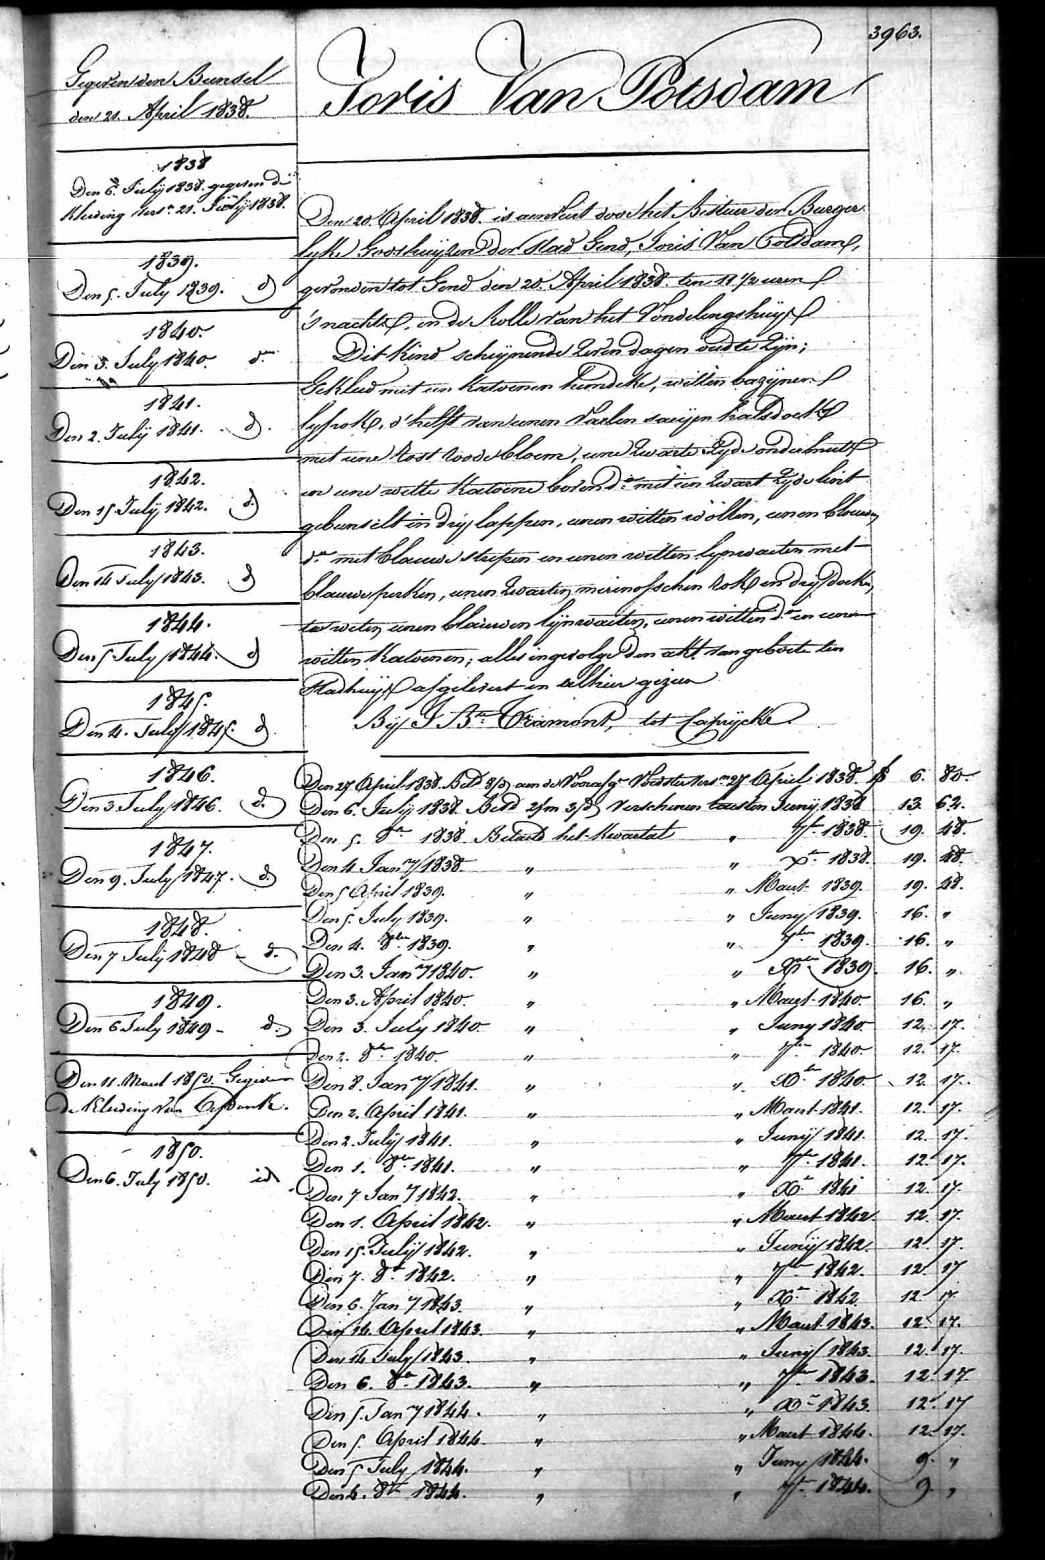 3963.
Joris Van Potsdam
Gegeven den Bundel
den 21. April 1838.
1838
Den 6. Julij 1838. gegeven de
kleeding
1839.
Den 5. July 1839. do
1840.
Den 3. July 1840. do
1841.
Den 2. Julij 1841. do.
1842.
Den 15 July 1842. do
1843.
Den 14 July 1843. do
1844.
Den 5 July 1844. do
1845.
Den 4. July 1845. do
1846.
Den 3 July 1846. do.
1847.
Den 9. July 1847. do.
1848.
Den 7 Julij 1848 - do.
1849.
Den 6 July 1849 - do.
Den 11. Maert 1850. Gegeven
de kleeding van
1850.
Den 6. July 1850. id
Den 20. April 1838. is aenveert door het Bestuer der Burger
lyke Godshuyzen der Stad Gend, Joris Van Potsdam,
gevonden tot Gend den 20. April 1838. ten 11 1/2 uren
'snachts, in de Rolle van het Vondelingshuys
Dit kind schynende zeven dagen oud te zyn;
Gekleed met een katoenen hemdeke, witten bazynen
lyfrok, d'helft van eenen halsdoek
met eene rost roode bloem, eene zwarte zyde ondermuts
en eene witte katoene bovende. met een zwart zyde lint
gebunselt in dry lappen, eenen witten wollen, eenen blauwen
do. met blauwe strepen en eenen witten lynwaeten met
blauwe perken, eenen zwarten rok en dry doeken,
te weten eenen blauwen lynwaeten, eenen witten do. en eenen
witten katoenen; alles ingevolge den akt van geboorte ten
Stadhuys afgelevert en alhier gezien
By J. Bte. Tramont, tot Caprycke.
Den 27 April 1838. Bet. aen de 27 April 1838. f 6. 80
Den 6. July 1838. Betd. verschenen Juny 1838 13. 62.
Den 5. 8er. 1838. Betaeld het kwartael " 7er 1838. 19. 48.
Den 4. Jany 1838. " " Xer. 1838. 19. 48.
Den 5 April 1839. " " Maert 1839. 19. 48.
Den 5. July 1839. " " Juny 1839. 16. "
Den 4. 8ber 1839. " " 7ber 1839. 16. "
Den 3. Jany 1840. " " Xber 1839. 16. "
Den 3. April 1840. " " Maert 1840. 16 "
Den 3. July 1840 " " Juny 1840 12. 17.
Den 2. 8er 1840. " " 7er 1840 12. 17.
Den 8. Jany 1841. " " Xer 1840 12. 17.
Den 2. April 1841. " " Maert 1841. 12. 17.
Den 2. Julij 1841. " " Junij 1841. 12. 17.
Den 1. 8er 1841. " " 7er 1841. 12. 17.
Den 7 Jany 1842. " " Xer 1841 12. 17.
Den 1. April 1842. " " Maert 1842. 12. 17.
Den 15. Julij 1842. " " Junij 1842. 12. 17.
Den 7. 8er 1842. " " 7ber 1842. 12. 17
Den 6. Jany 1843. " " Xer 1842 12. 17
Den 14. April 1843. " " Maert 1843. 12. 17.
Den 14 July 1843. " " Juny 1843. 12. 17.
Den 6. 8er 1843. " " 7er 1843. 12. 17
Den 5. Jany 1844. " " Xer 1843. 12. 17
Den 5. April 1844. " " Maert 1844. 12. 17.
Den 5 July 1844. " " Juny 1844. 9. "
Den 4. 8er 1844. " " 7er 1844. 9. "